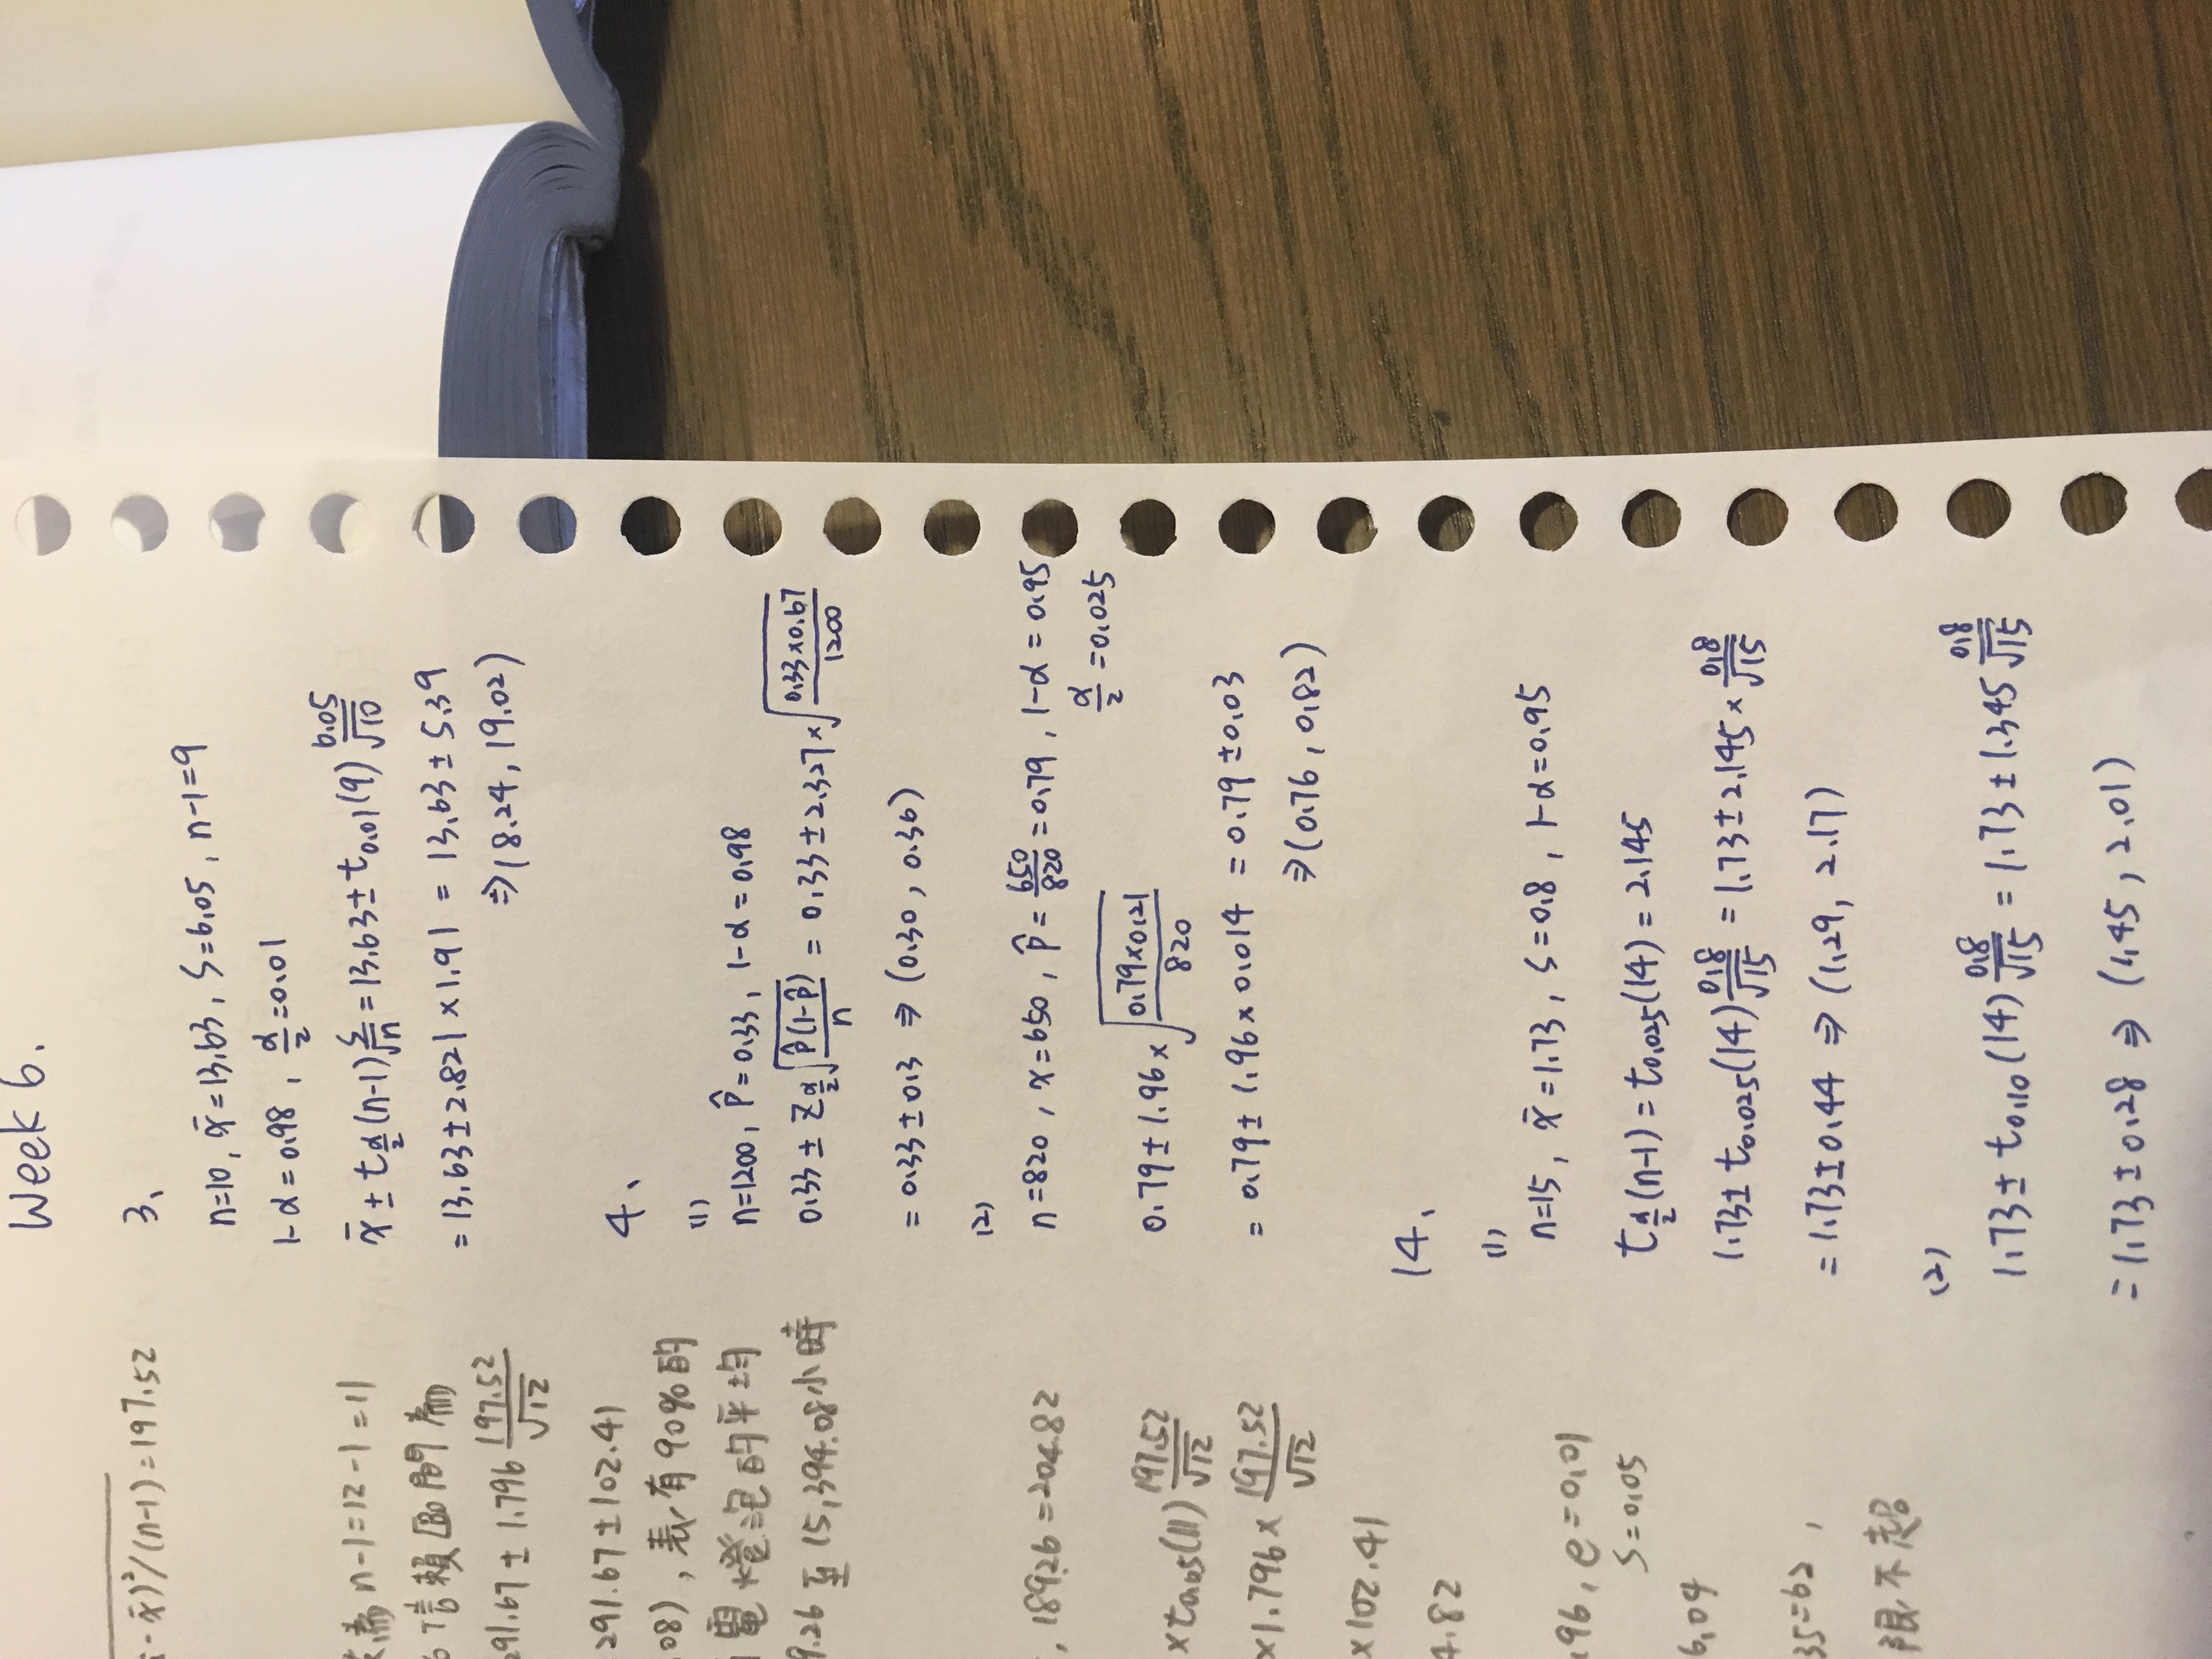 - x̄)²/(n-1) = 197.52
為 n-1=12-1=11
信賴區間為
291.67 ± 1.796 197.52/√12
291.67 ± 102.41
.08), 表有90%的
電燈泡的平均
9.26 至 15,394.08小時
, 189.26 = 204.82
× t0.05(11) 197.52/√12
×1.796× 197.52/√12
×102.41
4.82
.96, e=0.01
S=0.05
6.04
35=62,
限不超
Week 6.
3、
n=10, x̄=13.63, S=6.05, n-1=9
1-α=0.98, α/2=0.01
x̄ ± t α/2 (n-1) S/√n = 13.63 ± t0.01(9) 6.05/√10
= 13.63 ± 2.821 × 1.91 = 13.63 ± 5.39
⇒ (8.24, 19.02)
4、
(1)
n=1200, p̂=0.33, 1-α=0.98
0.33 ± Z α/2 √(p̂(1-p̂)/n) = 0.33 ± 2.327 × √(0.33×0.67/1200)
= 0.33 ± 0.3 ⇒ (0.30, 0.36)
(2)
n=820, x=650, p̂= 650/820 =0.79, 1-α=0.95
α/2 =0.025
0.79 ± 1.96 × √(0.79×0.21/820)
= 0.79 ± 1.96 × 0.014 = 0.79 ± 0.03
⇒ (0.76, 0.82)
14、
(1)
n=15, x̄=1.73, S=0.8, 1-α=0.95
t α/2 (n-1) = t0.025(14) = 2.145
1.73 ± t0.025(14) 0.8/√15 = 1.73 ± 2.145 × 0.8/√15
= 1.73 ± 0.44 ⇒ (1.29, 2.17)
(2)
1.73 ± t0.10(14) 0.8/√15 = 1.73 ± 1.345 0.8/√15
= 1.73 ± 0.28 ⇒ (1.45, 2.01)